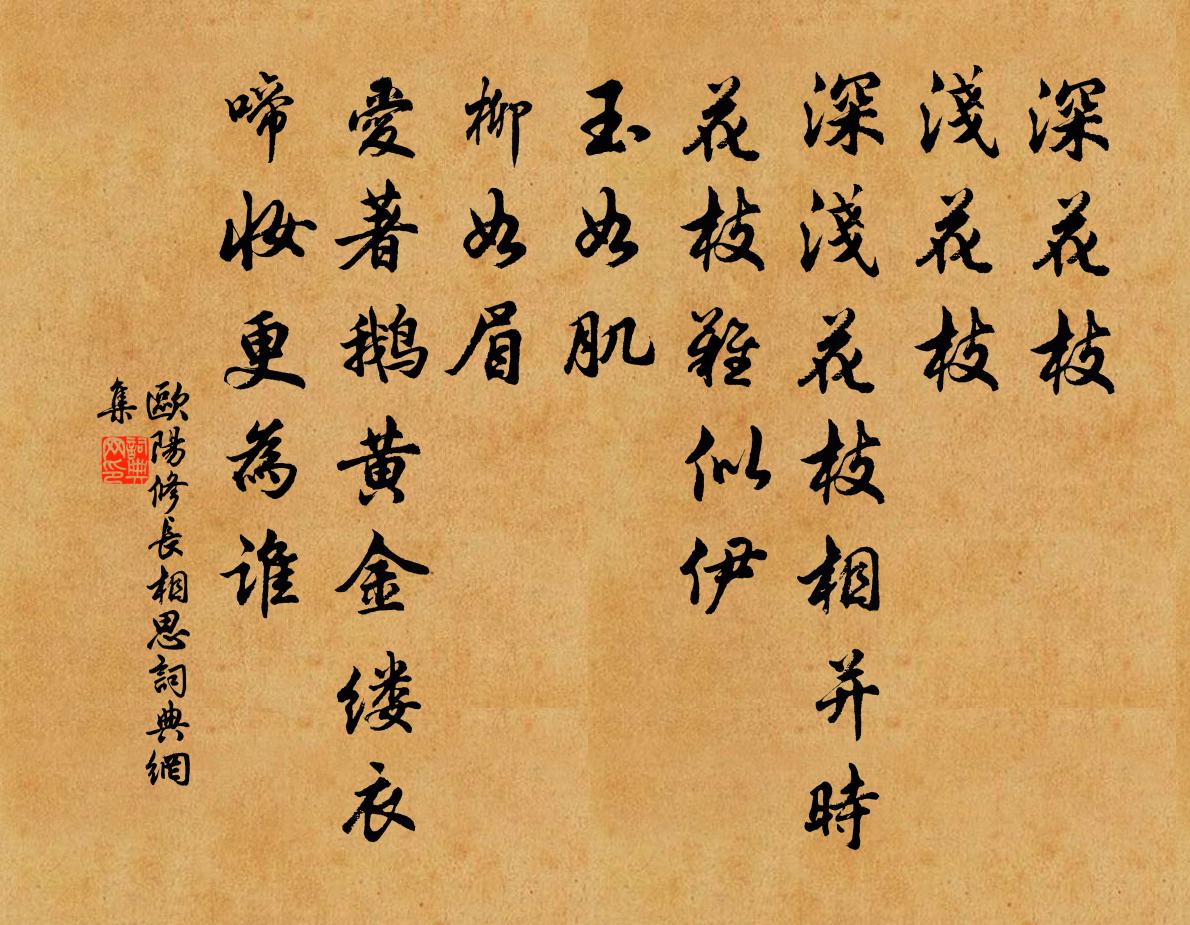 深花枝
淺花枝
深淺花枝相并時
花枝難似伊
玉如肌
柳如眉
愛著鵝黄金缕衣
啼妝更為誰
歐陽修長相思詞典網
集
詞典網印